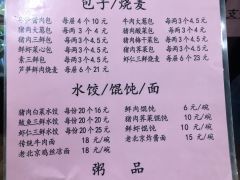 包子/烧麦
每屉4个10元 牛肉大葱包 每两3个4.5元
猪肉三鲜包 每两3个4.5元 猪肉酸菜包 每两3个4.5元
猪肉三鲜包 每两3个4.5元 猪肉梅干菜包 每两3个4.5元
鲜虾菜心包 每两3个4.5元 猪肉大葱包 每两3个4.5元
素三鲜包 每屉6个18元 虾仁三鲜烧麦 每屉6个21元
芦笋鲜肉烧麦 每屉6个21元
水饺/馄饨/面
猪肉白菜水饺 每份20个16元 鲜肉馄饨 6元/碗
鲅鱼三鲜水饺 每份20个26元 猪肉荠菜馄饨 10元/碗
虾仁三鲜水饺 每份20个26元 鲜虾馄饨 10元/碗
传统牛肉面 18元/碗 老北京炸酱面 15元/碗
老北京鸡丝凉面 18元/碗
粥品